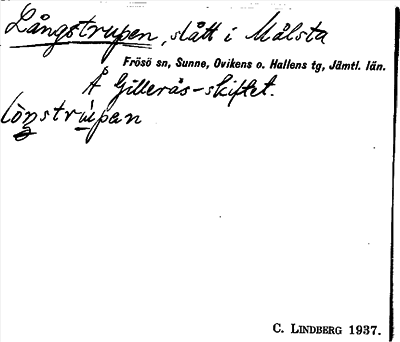 Långstrupen, slått i Målsta
Frösö sn, Sunne, Ovikens o. Hallens tg, Jämtl. län.
Å Gillerås-skiftet.
lòŋstrʉ̀pan
C. LINDBERG 1937.